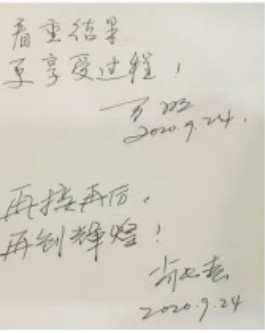 看重结果
更享受过程！
2020.9.24.
再接再厉，
再创辉煌！
2020.9.24